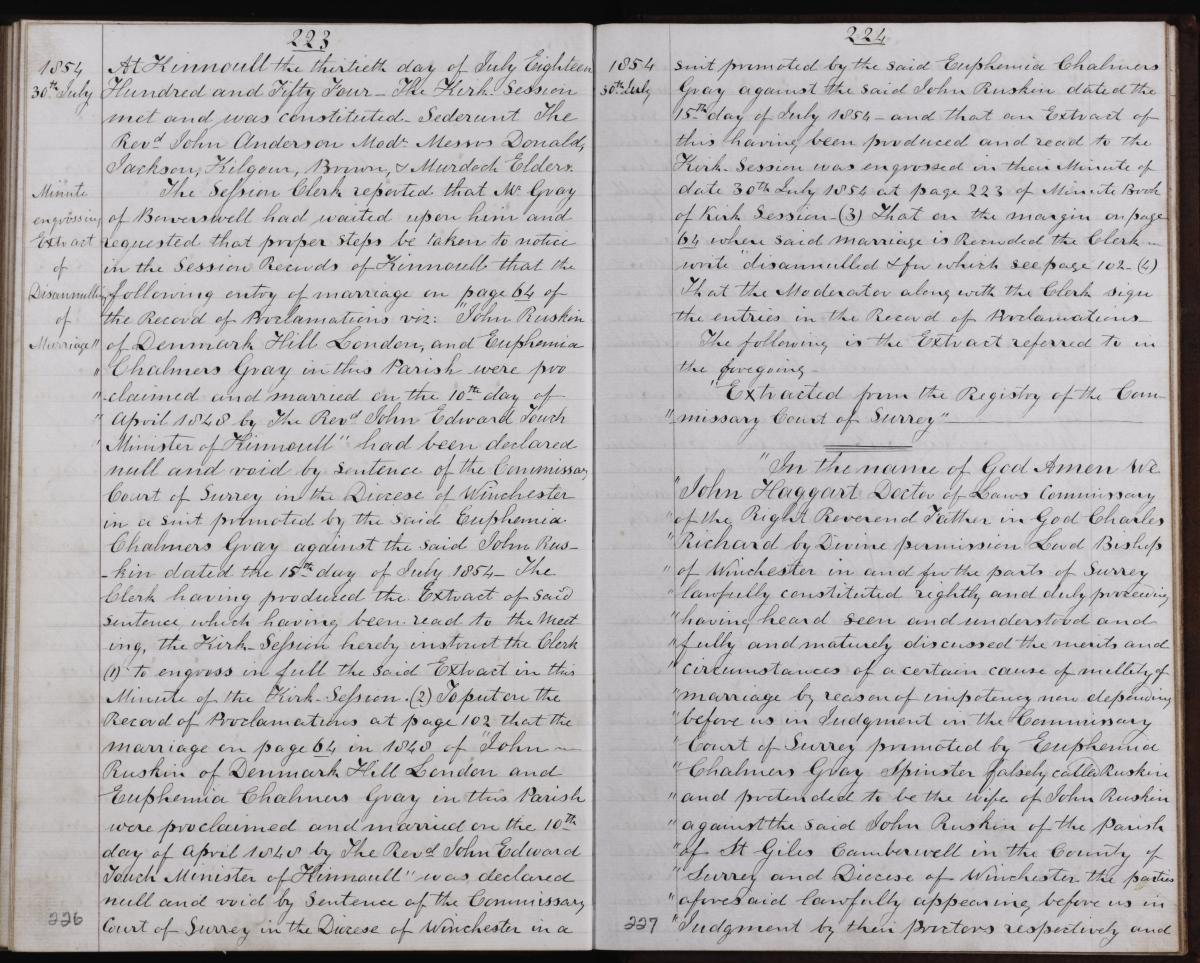 223
1854
30th July
At Kinnoull the thirtieth day of July Eighteen
Hundred and Fifty Four – The Kirk Session
met and was constituted – Sederunt The
Revd John Anderson Modr Messrs Donald,
Jackson, Kilgour, Brown, & Murdoch Elders.
Minute
engrossing
Extract
of
Disannulling
of
Marriage
The Session Clerk reported that Mr Gray
of Bowerswell had waited upon him and
requested that proper steps be taken to notice
in the Session Records of Kinnoull that the
following entry of marriage on page 64 of
the Record of Proclamations viz: "John Ruskin
" of Denmark Hill London, and Euphemia
" Chalmers Gray in this Parish were pro
" claimed and married on the 10th day of
" April 1848 by The Revd John Edward Touch
" Minister of Kinnoull" had been declared
null and void by sentence of the Commissary
Court of Surrey in the Diocese of Winchester
in a suit promoted by the said Euphemia
Chalmers Gray against the said John Rus-
-kin dated the 15th day of July 1854 – The
Clerk having produced the Extract of said
sentence which having been read to the Meet
ing, the Kirk-Session hereby instruct the Clerk
(1) to engross in full the said Extract in this
Minute of the Kirk-Session. (2) To put on the
Record of Proclamations at page 102 that the
marriage on page 64 in 1848 of "John
Ruskin of Denmark Hill London and
Euphemia Chalmers Gray in this Parish
were proclaimed and married on the 10th
day of April 1848 by The Revd John Edward
Touch Minister of Kinnoull" was declared
null and void by Sentence of the Commissary
Court of Surrey in the Diocese of Winchester in a
226
224
1854
30th July
suit promoted by the said Euphemia Chalmers
Gray against the said John Ruskin dated the
15th day of July 1854 – and that an Extract of
this having been produced and read to the
Kirk-Session was engrossed in their Minute of
date 30th July 1854 at page 223 of Minute Book
of Kirk Session – (3) That on the margin on page
64 where said marriage is Recorded the Clerk
write "disannulled & for which see page 102 – (4)
That the Moderator along with the Clerk sign
the entries in the Record of Proclamations
The following is the Extract referred to in
the foregoing –
"Extracted from the Registry of the Com-
" missary Court of Surrey"
"In the name of God Amen We
" John Haggart Doctor of Laws Commissary
" of the Right Reverend Father in God Charles
" Richard by Divine permission Lord Bishop
" of Winchester in and for the parts of Surrey
" lawfully constituted rightly and duly proceeding
" having heard seen and understood and
" fully and maturely discussed the merits and
" circumstances of a certain cause of nullity of
" marriage by reason of impotency now depending
" before us in Judgment in the Commissary
" Court of Surrey promoted by Euphemia
" Chalmers Gray Spinster falsely called Ruskin
" and pretended to be the wife of John Ruskin
" against the said John Ruskin of the parish
" of St Giles Camberwell in the County of
" Surrey and Diocese of Winchester the parties
" aforesaid lawfully appearing before us in
" Judgment by their proctors respectively and
227